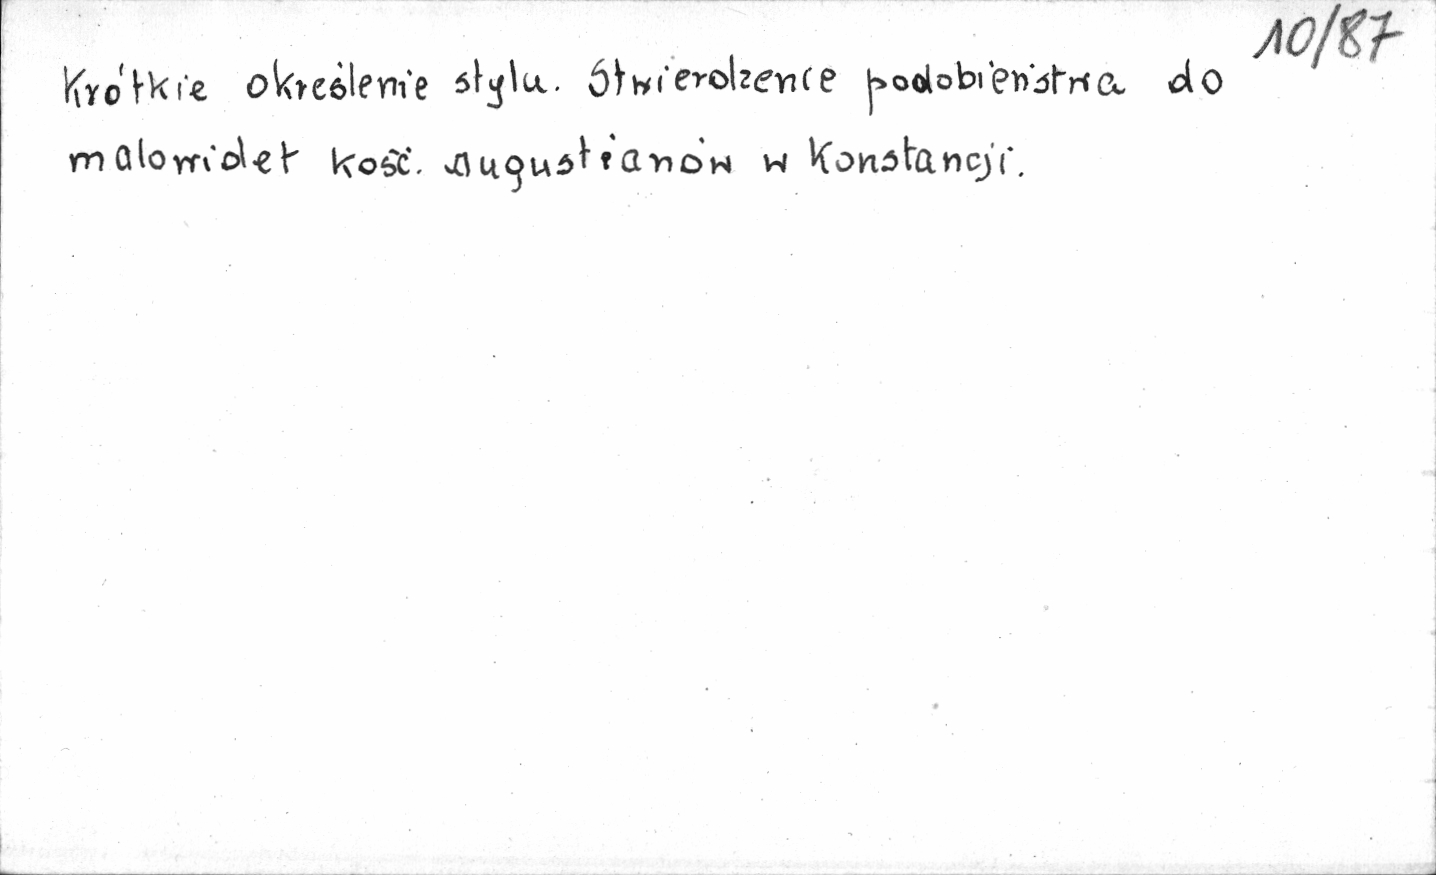 10/87
Krótkie określenie stylu. Stwierdzenie podobieństwa do
malowideł kość. augustianów w Konstancji.